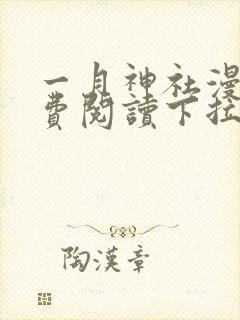 一月神社漫
費閱讀下拉
陶漢章